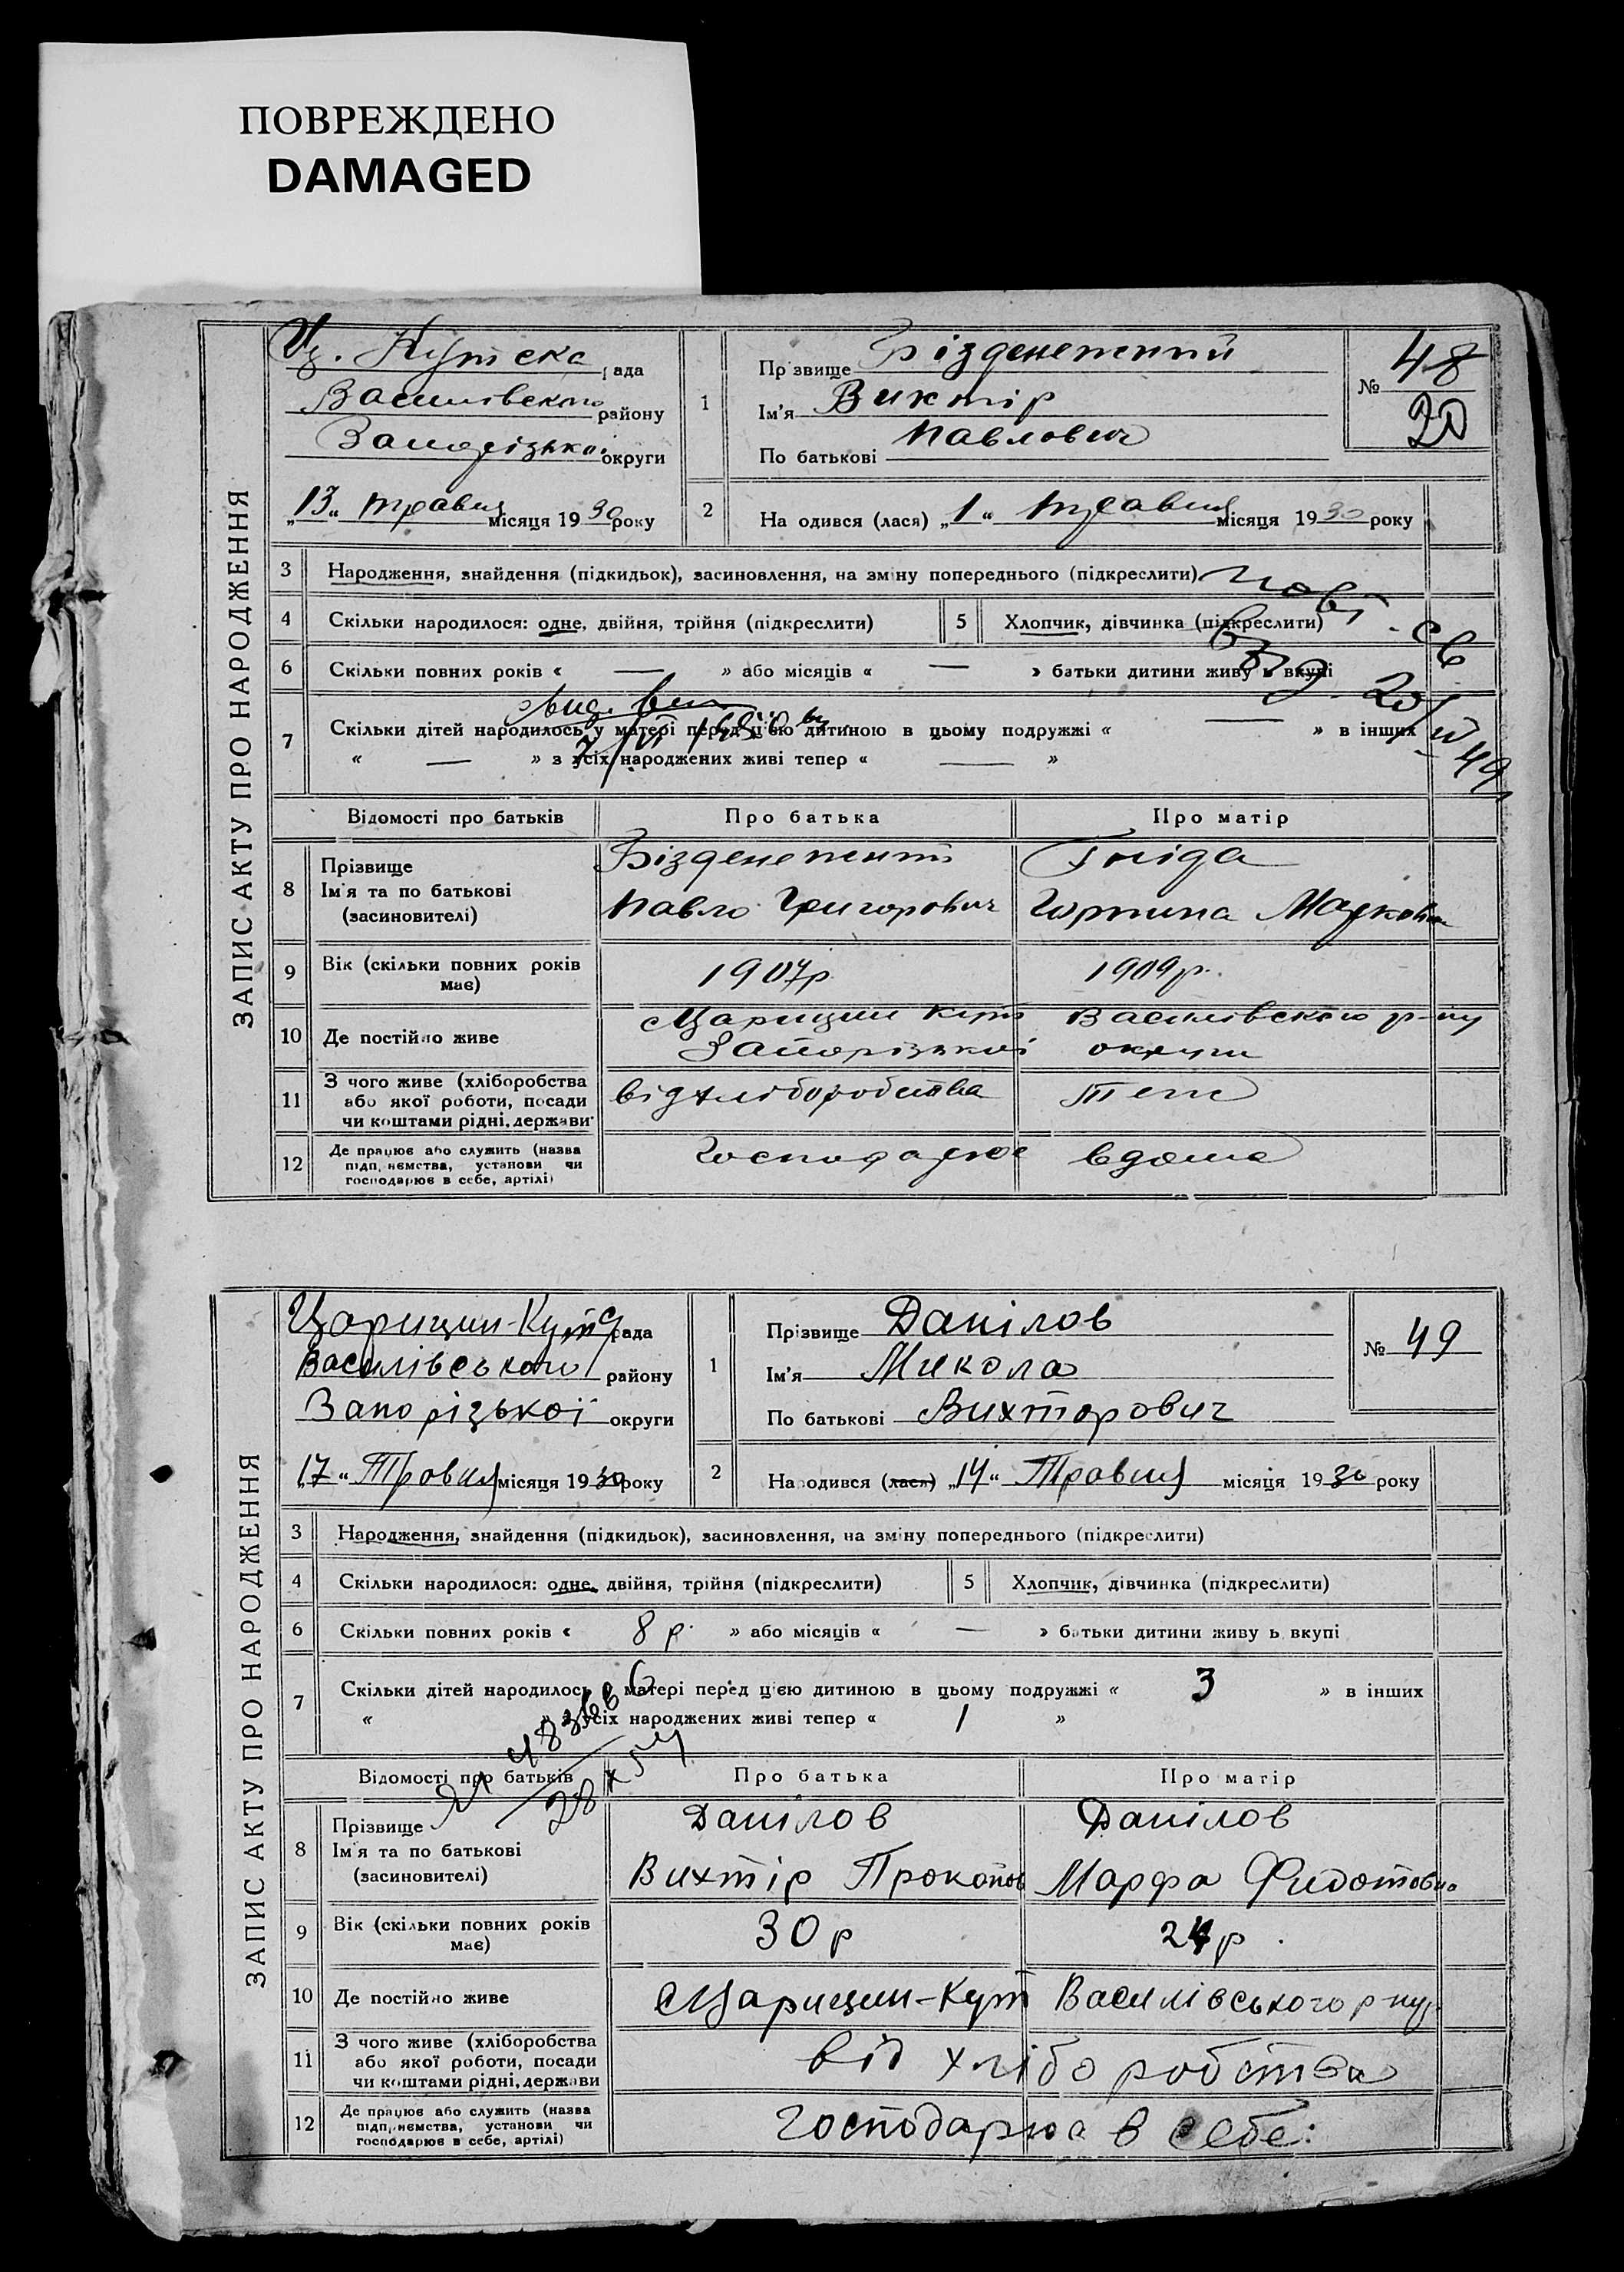 ПОВРЕЖДЕНО
DAMAGED
ЗАПИС АКТУ ПРО НАРОДЖЕННЯ
Ц. Кутська рада
Василівського району
Запорізької округи
„13“ травня місяця 1930 року
1
Прізвище Бізденежний
Ім'я Віктір
По батькові Павлович
№ 48
20
2
Народився (лася) „1“ травня місяця 1930 року
3 Народження, знайдення (підкидьок), засиновлення, на зміну попереднього (підкреслити)
4 Скільки народилося: одне, двійня, трійня (підкреслити)
5 Хлопчик, дівчинка (підкреслити)
6 Скільки повних років « — » або місяців « — » батьки дитини живуть вкупі
7 Скільки дітей народилось у матері перед цією дитиною в цьому подружжі « — » в інших
« — » з усіх народжених живі тепер « — »
Відомості про батьків Про батька Про матір
8 Прізвище
Ім'я та по батькові
(засиновителі)
Бізденежний Гніда
Павло Григорович Горпина Марковна
9 Вік (скільки повних років
має)
1907р 1909р.
10 Де постійно живе
Царицин Кут Василівського р-ну
Запорізької округи
11 З чого живе (хліборобства
або якої роботи, посади
чи коштами рідні, держави
від хліборобства Теж
12 Де працює або служить (назва
підприємства, установи чи
господарює в себе, артілі)
Господарює вдома
ЗАПИС АКТУ ПРО НАРОДЖЕННЯ
Царицин-Кутс рада
Василівського району
Запорізької округи
„17“ Травня місяця 1930 року
1
Прізвище Данілов
Ім'я Микола
По батькові Вихторович
№ 49
2
Народився (лася) „14“ Травня місяця 1930 року
3 Народження, знайдення (підкидьок), засиновлення, на зміну попереднього (підкреслити)
4 Скільки народилося: одне, двійня, трійня (підкреслити)
5 Хлопчик, дівчинка (підкреслити)
6 Скільки повних років « 8 р. » або місяців « — » батьки дитини живуть вкупі
7 Скільки дітей народилось у матері перед цією дитиною в цьому подружжі « 3 » в інших
« » з усіх народжених живі тепер « 1 »
Відомості про батьків Про батька Про матір
8 Прізвище
Ім'я та по батькові
(засиновителі)
Данілов Данілов
Вихтір Прокопов Марфа Фидотовна
9 Вік (скільки повних років
має)
30 р 24 р.
10 Де постійно живе
Царицин-Кут Василівського р-ну
11 З чого живе (хліборобства
або якої роботи, посади
чи коштами рідні, держави
від хліборобства
12 Де працює або служить (назва
підприємства, установи чи
господарює в себе, артілі)
Господарює в себе.